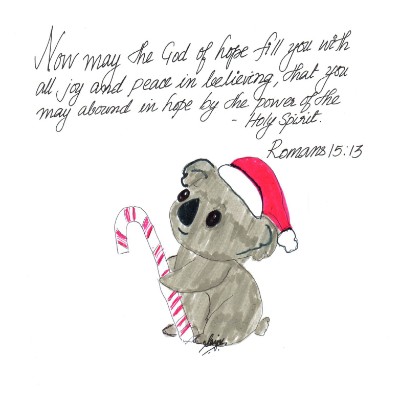 Now may the God of hope fill you with
all joy and peace in believing, that you
may abound in hope by the power of the
- Holy Spirit.
Romans 15:13